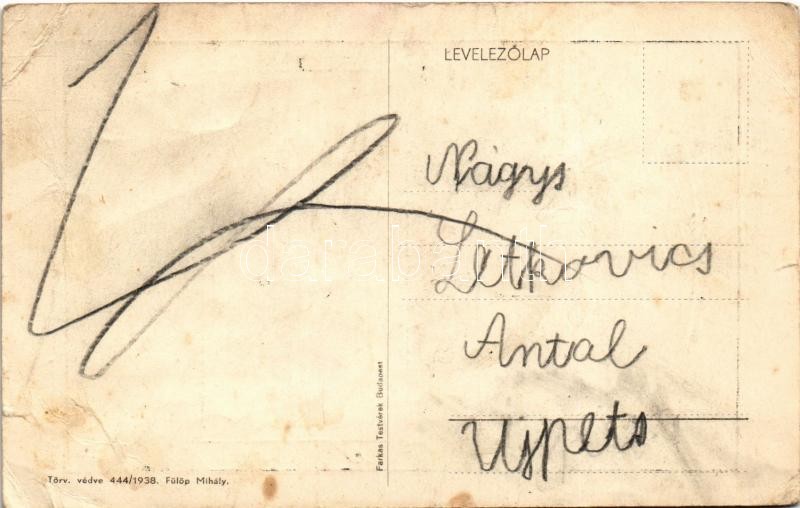 LEVELEZŐLAP
Nágys
Letkovics
Antal
Ujpets
Farkas Testvérek Budapest
Törv. védve 444/1938. Fülöp Mihály.